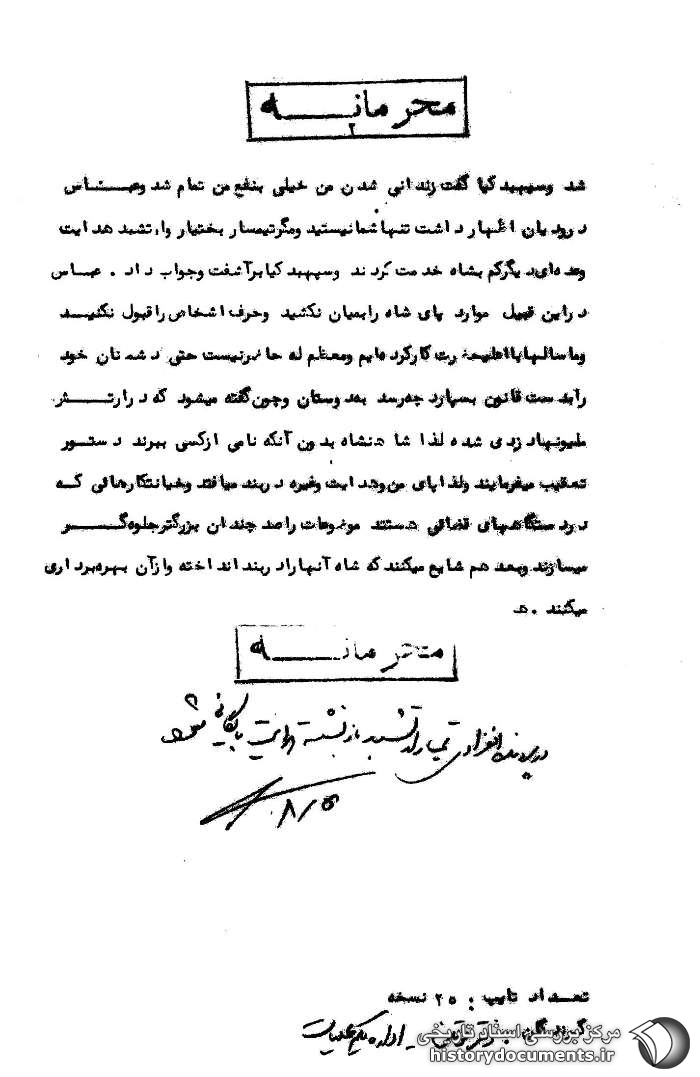 محرمانــــه
شد وسپهبد کیا گفت زندانی شدن من خیلی بنفع من تمام شد وعبــاس
درودیان اظهار داشت تنها شما نیستید ومگر تیمسار بختیار وارتشبد هدایت
وعده‌ای دیگر کم بشاه خدمت کردند وسپهبد کیا برآشفت وجواب داد . عبــاس
دراین قبیل موارد پای شاه رابمیان نکشید وحرف اشخاص را قبول نکنیــد
وما سالها با اعلیحضرت کار کرده‌ایم ومعظم له حاضر نیست حتی دشمنان خود
رابدست قانون بسپارد چه رسد بدوستان وچون گفته میشود که درارتــش
ملیونها دزدی شده لذا شاهنشاه بدون آنکه نامی از کسی ببرند دستور
تعقیب میفرمایند ولذا پای من وهدایت وغیره دربند میافتد وخیانتکارهائی کــه
دردستگاههای قضائی هستند موضوعات راصد چندان بزرگتر جلوه‌گــر
میسازند وبعد هم شایع میکنند که شاه آنهارا دربند انداخته وازآن بهره‌برداری
میکنند . ه
محرمانــــه
در پرونده انفرادی تیمسار ارتشبد بازنشسته هدایت بایگانی شود
۸/۵
تعداد تایپ : ۲۵ نسخه
گیرندگان :
مرکز بررسی اسناد تاریخی
historydocuments.ir